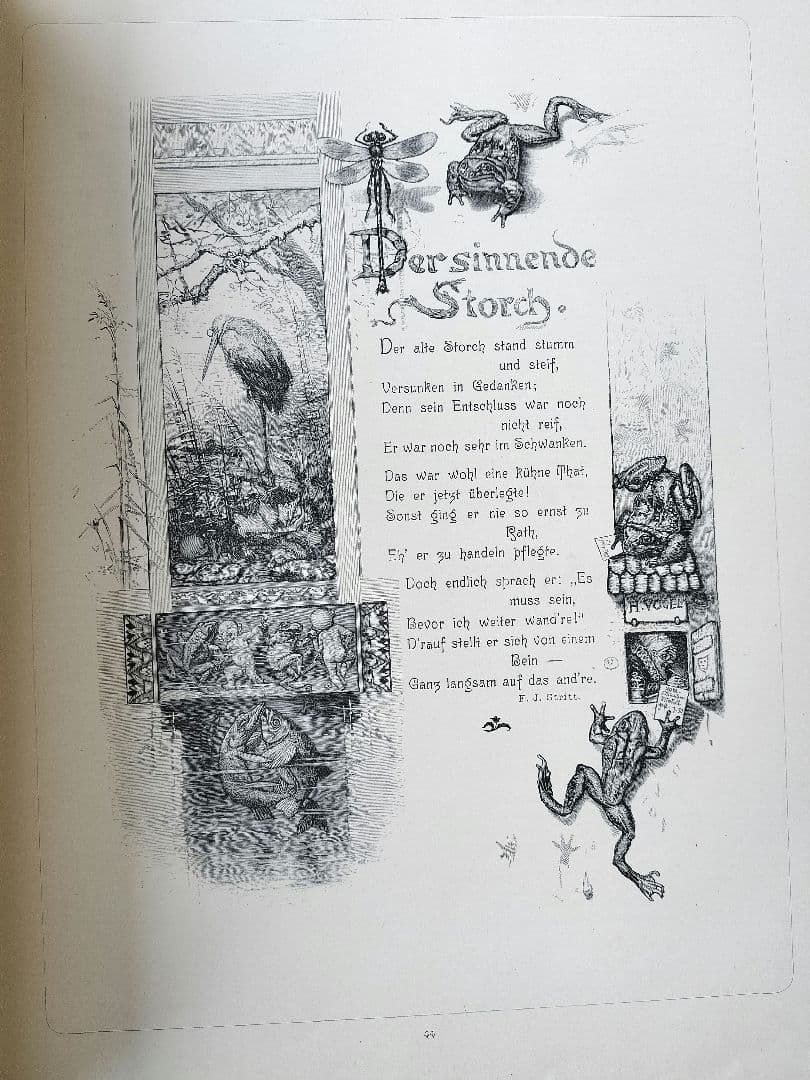 Der sinnende
Storch.
Der alte Storch stand stumm
und steif,
Versunken in Gedanken;
Denn sein Entschluss war noch
nicht reif,
Er war noch sehr im Schwanken.
Das war wohl eine kühne That,
Die er jetzt überlegte!
Sonst ging er nie so ernst zu
Rath,
Eh' er zu handeln pflegte.
Doch endlich sprach er: „Es
muss sein,
Bevor ich weiter wand're!"
D'rauf stellt er sich von einem
Bein —
Ganz langsam auf das and're.
F. J. Stritt.
H. VOGEL